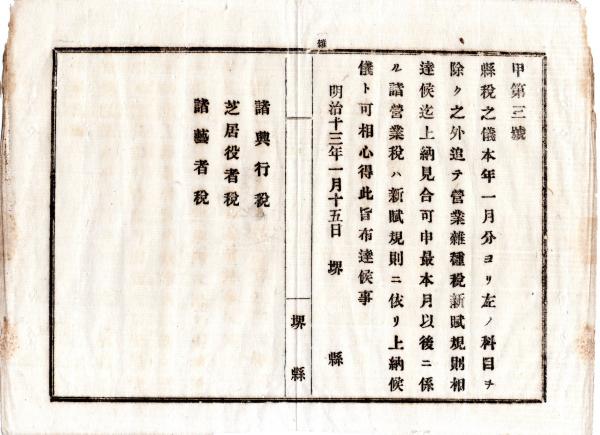 甲第三號
縣稅之儀本年一月分ヨリ左ノ科目ヲ
除ク之外追テ營業雜種稅新賦規則相
達候迄上納見合可申最本月以後ニ係
ル諸營業稅ハ新賦規則ニ依リ上納候
儀ト可相心得此旨布達候事
明治十三年一月十五日 堺縣
堺縣
諸興行稅
芝居役者稅
諸藝者稅